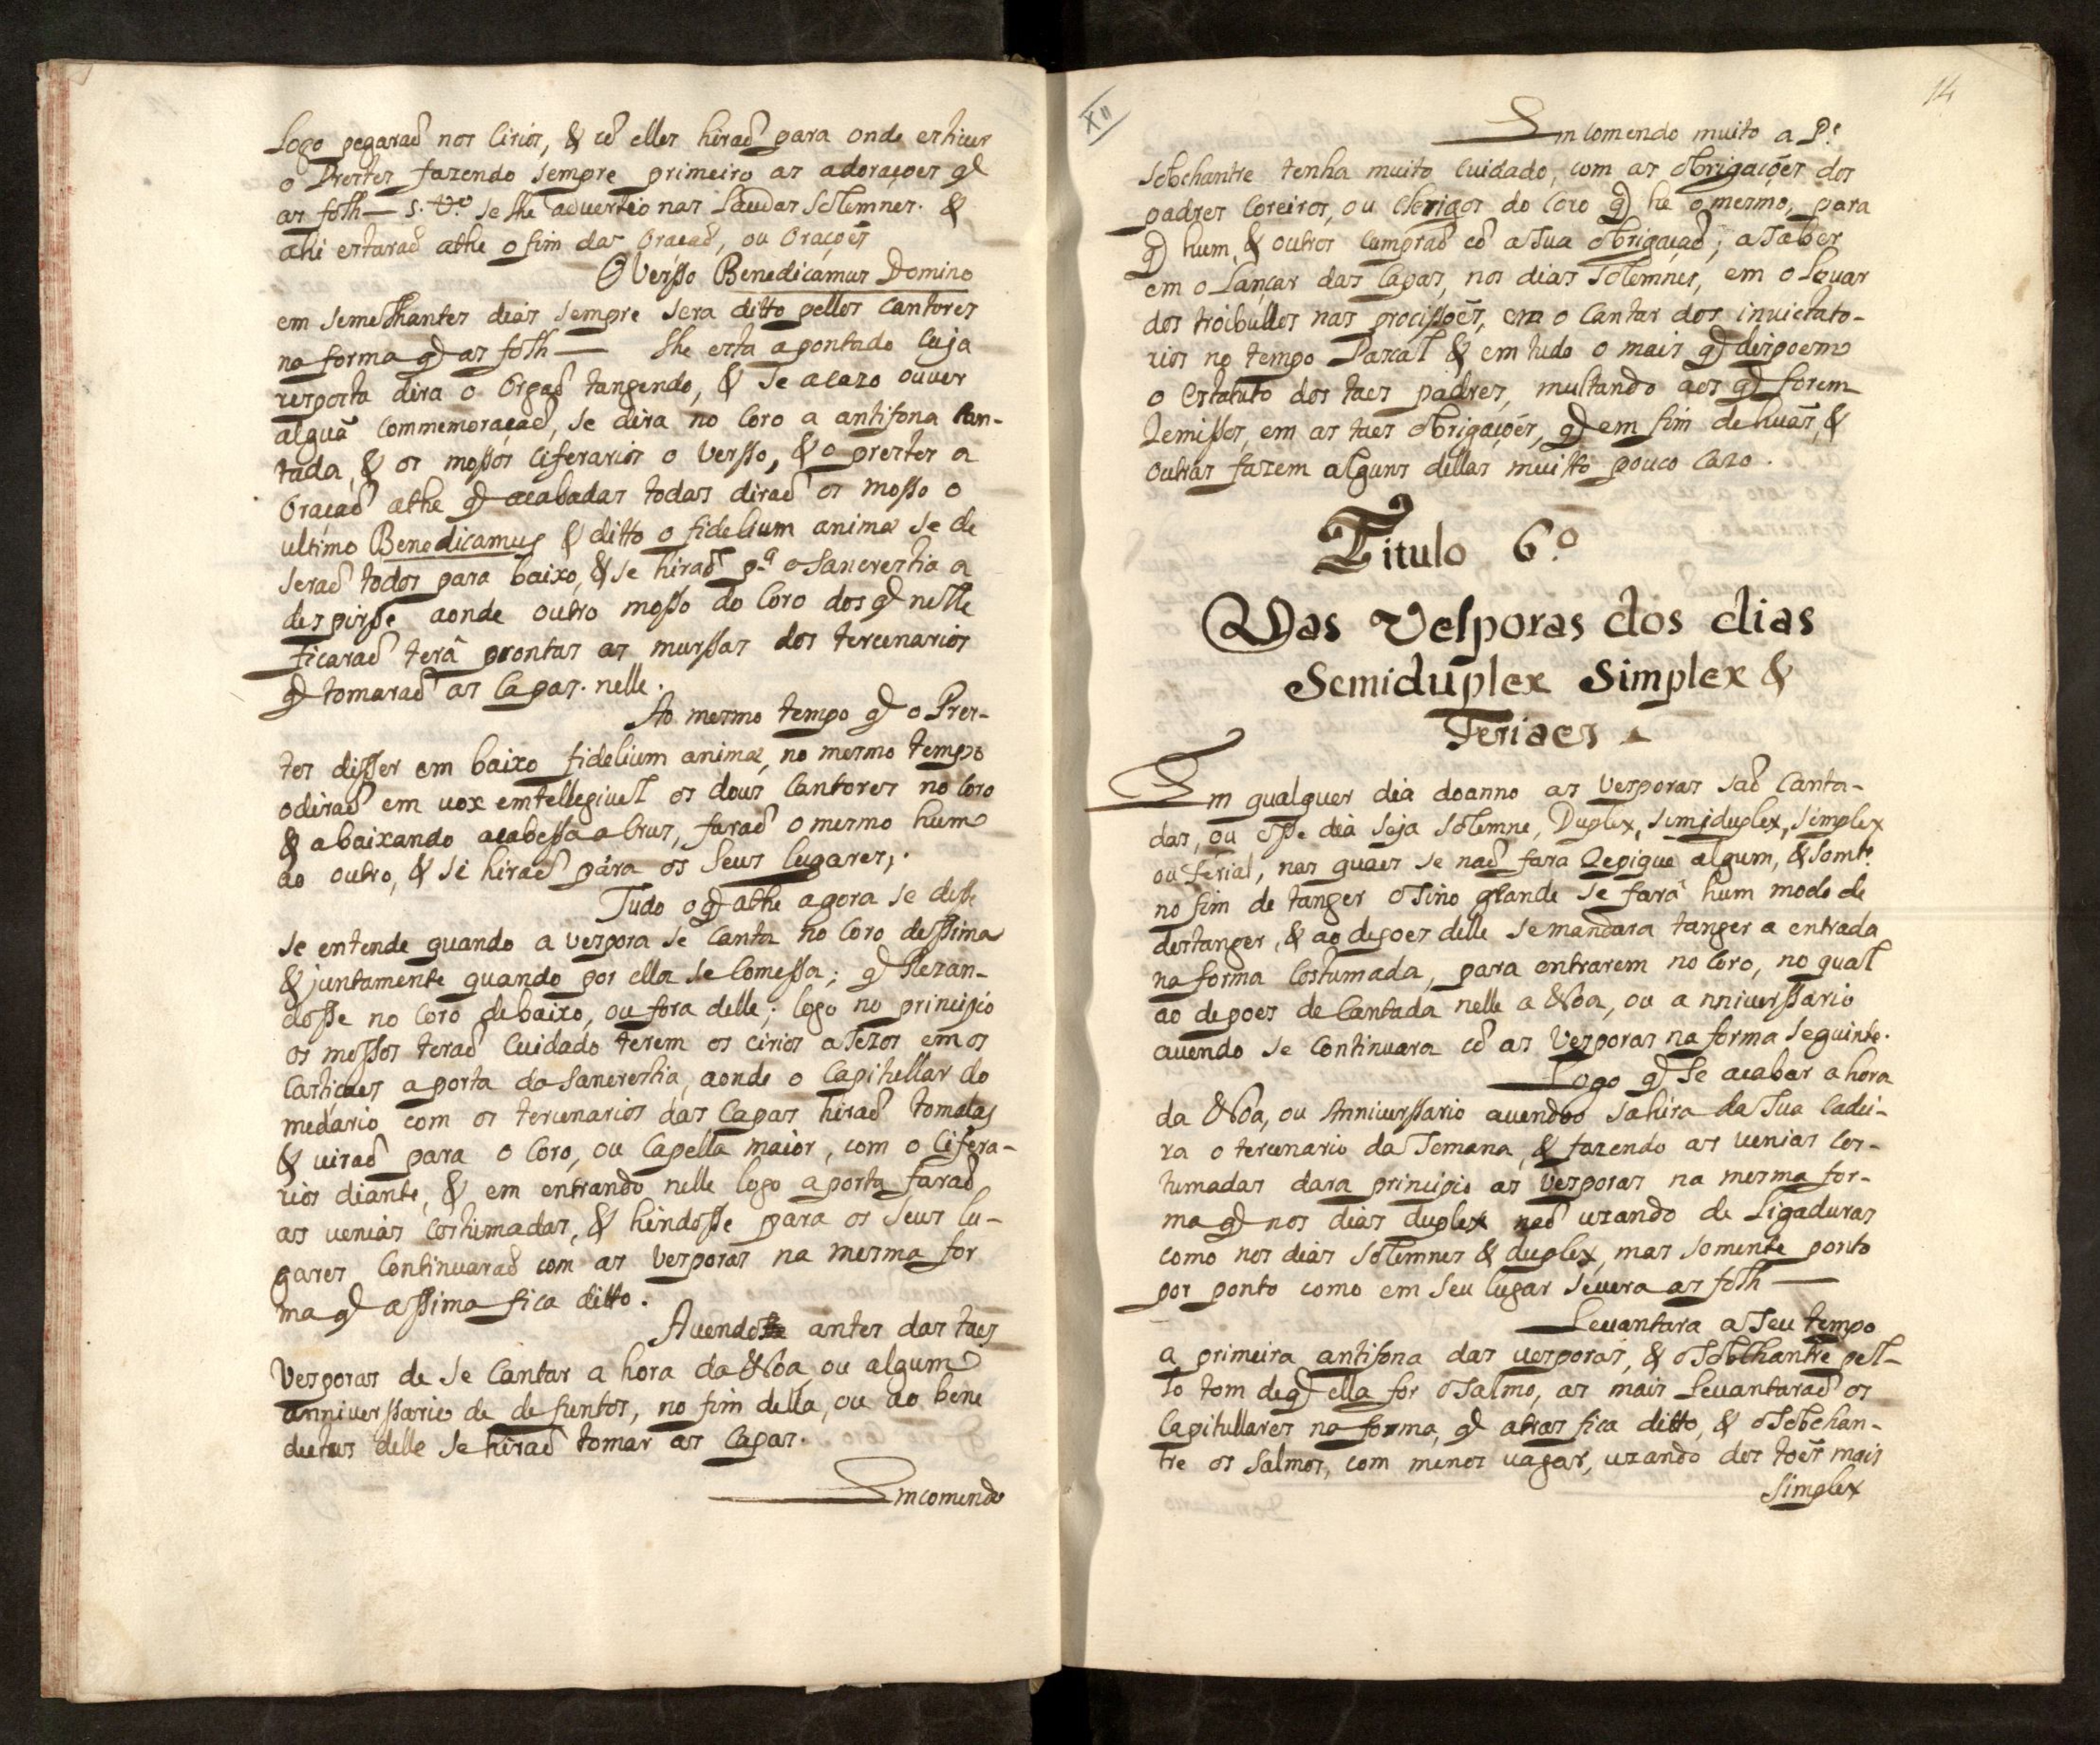 Logo pegaraõ nos Cirios, & cõ elles hiraõ para onde estiver
o Prestes fazendo sempre primeiro as adoraçoes q̃
as folh— 5. Vº se lhe advertio nas Laudas Solemnes. &
ahi estaraõ athe o fim das Oraçaõ, ou Orações
O Versso Benedicamus Domino
em semelhantes dias sempre sera ditto pellos Cantores
na forma q̃ as folh— lhe esta apontado Cuja
resposta dira o Orgaõ tangendo, & se acazo ouver
alguã Commemoraçaõ, se dira no Coro a antifona Can-
tada, & os mossos Ciferarios o Versso, & o prestes a
Oraçaõ athe q̃ acabadas todas diraõ os mosso o
ultimo Benedicamus & ditto o fidelium animæ se de
seraõ todos para baixo, & se hiraõ pª a Sancrestia a
despirsse aonde outro mosso do Coro dos q̃ nelle
ficaraõ terâ prontas as murssas dos tercenarios
q̃ tomaraõ as Capas. nelle.
Ao mesmo tempo q̃ o Pres-
tes disser em baixo fidelium animæ, no mesmo tempo
o diraõ em uox emtellegivel os dous Cantores no Coro
& abaixando acabessa a Crus, faraõ o mesmo hum
ao outro, & se hiraõ pára os Seus lugares,.
Tudo o q̃ athe agora se disse
se entende quando a vespora se Canta no Coro dessima
& juntamente quando por ella se Comessa; q̃ Rezan-
dosse no Coro debaixo, ou fora delle; logo no principio
os mossos teraõ Cuidado terem os cirios aSezos em os
Casticaes a porta da Sancrestia, aonde o Capitullar do
medario com os tercenarios das Capas hiraõ tomalas
& uiraõ para o Coro, ou Capella maior, com o Cifera-
rios diante, & em entrando nelle logo a porta faraõ
as uenias costumadas, & hindosse para os Seus lu-
gares Continuaraõ com as Vesporas na mesma for
ma q̃ assima fica ditto.
Avendo antes das taes
Vesporas de se Cantar a hora da Noa, ou algum
anniverssario de defuntos, no fim della, ou ao bene
dictus delle se hiraõ tomar as Capas.
Emcomendo
XII
14
Emcomendo muito a Pº
Sobchantre tenha muito Cuidado, com as obrigações dos
padres Coreiros, ou Clerigos do Coro q̃ he o mesmo, para
q̃ hum, & outros Compraõ cõ a Sua obrigaçaõ; a Saber
em o Lançar das Capas, nos dias Solemnes, em o Levar
dos troibullos nas procissões, em o Cantar dos invictato-
rios no tempo Pascal & em tudo o mais q̃ dispoem
o Estatuto dos taes padres, multando aos q̃ forem
Remissos, em as taes obrigações, q̃ em fim de huãs, &
outras fazem alguns dellas muitto pouco Cazo.
Titulo 6.º
Das Vesporas dos dias
Semiduplex Simplex &
Feriaes
Em qualquer dia do anno as Vesporas saõ Canta-
das, ou esse dia seja Solemne, Duplex, Semiduplex, Simplex
ou Ferial, nas quaes se naõ fara Repique algum, & Somte.
no fim de tanger o Sino grande se fará hum modo de
destanger, & ao depoes delle se mandara tanger a entrada
na forma Costumada, para entrarem no Coro, no qual
ao depoes de Cantada nelle a Noa, ou anniverssario
auendo se Continuara cõ as Vesporas na forma Seguinte.
Logo q̃ Se acabar a hora
da Noa, ou Anniverssario auendoo Sahira da Sua Cadei-
ra o tercenario da Semana, & fazendo as uenias Cos-
tumadas dara principio as Vesporas na mesma for-
ma q̃ nos dias duplex naõ uzando de Ligaduras
como nos dias Solemnes & duplex, mas Somente ponto
por ponto como em Seu lugar Severa as folh—
Levantara a Seu tempo
a primeira antifona das uesporas, & o Sobchantre pel-
lo tom de q̃ ella for o Salmo, as mais Levantaraõ os
Capitullares na forma, q̃ atras fica ditto, & o Sobchan-
tre os Salmos, com menos vagar, uzando dos toẽs mais
Simplex